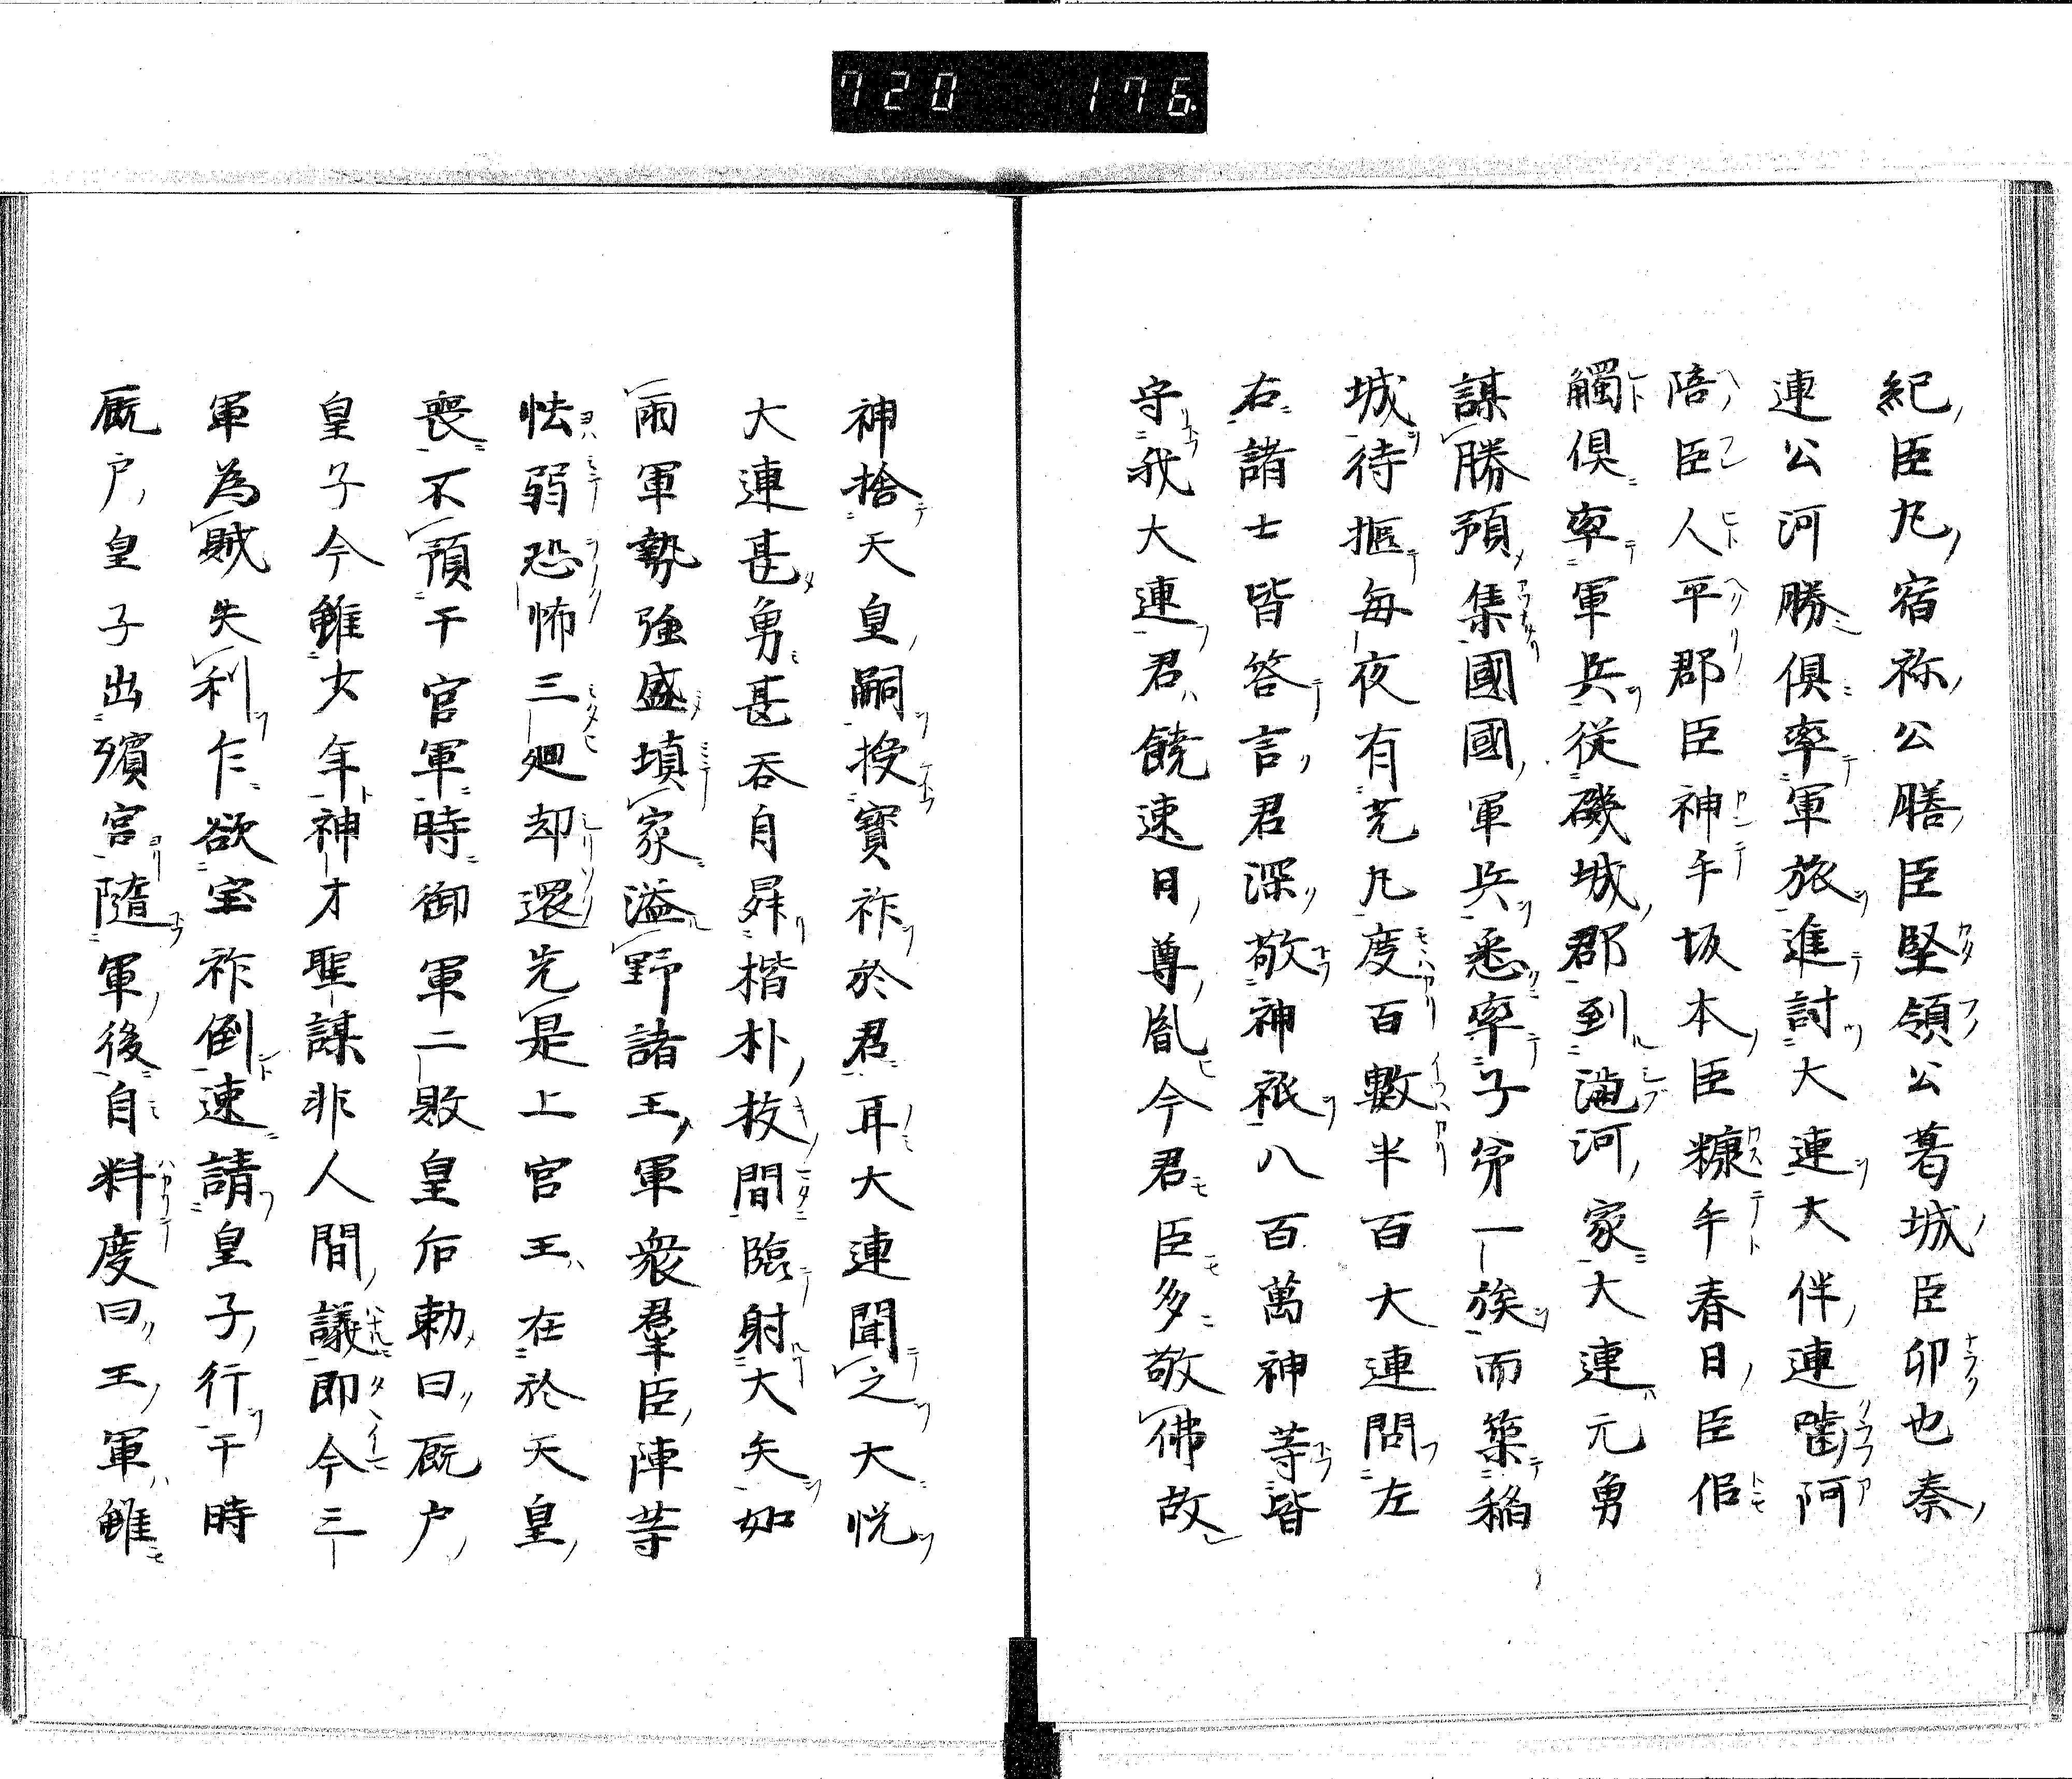 720 176.
紀臣凡宿祢公膳臣堅領公葛城臣卯也秦
連公河勝俱率軍旅進討大連大伴連噛阿
陪臣人平郡臣神手坂本臣糠午春日臣佀
觸俱率軍兵従磯城郡到澁河家大連元勇
謀勝預集國國軍兵悉率子弟一族而築稲
城待抠每夜有芒凡度百數半百大連問左
右諸士皆答言君深敬神祇八百萬神等皆
守我大連君饒速日尊胤今君臣多敬佛故
神捨天皇嗣授寳祚於君耳大連聞之大悦
大連甚勇甚吞自昇楷朴枝間臨射大矢如
雨軍勢強盛填家溢野諸王軍衆羣臣陣等
怯弱恐怖三廻却還先是上官王在於天皇
喪不預干官軍時御軍二敗皇后勅曰厩户
皇子今雖女年神才聖謀非人間議即今三
軍為賊失利乍欲宝祚倒速請皇子行干時
厩户皇子出殯宮隨軍後自料度曰王軍雖